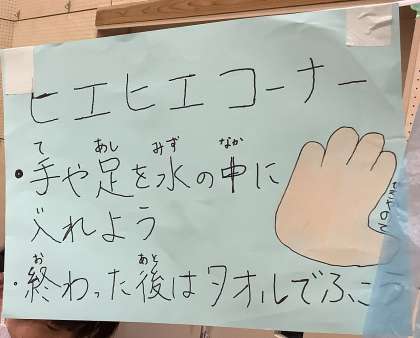 ヒエヒエコーナー
て あし みず なか
・手や足を水の中に
入れよう
お あと
・終わった後はタオルでふこう